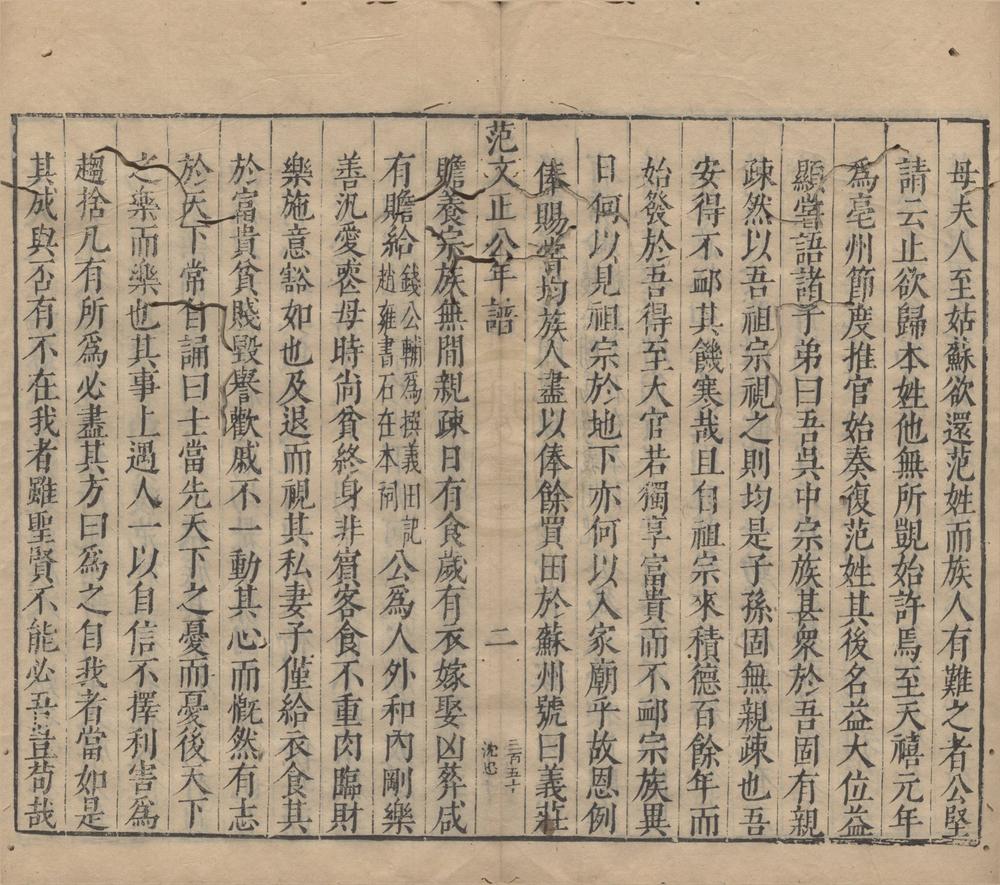 母夫人至姑蘇欲還范姓而族人有難之者公堅
請云止欲歸本姓他無所覬始許焉至天禧元年
爲亳州節度推官始奏復范姓其後名益大位益
顯嘗語諸子弟曰吾吳中宗族甚衆於吾固有親
疎然以吾祖宗視之則均是子孫固無親疎也吾
安得不䘏其饑寒哉且自祖宗來積德百餘年而
始發於吾得至大官若獨享富貴而不䘏宗族異
日何以見祖宗於地下亦何以入家廟乎故恩例
俸賜嘗均族人盡以俸餘買田於蘇州號曰義莊
范文正公年譜
二
三百五十
沈忠
贍養宗族無間親疎日有食歲有衣嫁娶凶葬咸
有贍給錢公輔爲撰義田記
趙雍書石在本祠公爲人外和內剛樂
善汎愛喪母時尚貧終身非賓客食不重肉臨財
樂施意豁如也及退而視其私妻子僅給衣食其
於富貴貧賤毀譽歡戚不一動其心而慨然有志
於天下常自誦曰士當先天下之憂而憂後天下
之樂而樂也其事上遇人一以自信不擇利害爲
趨捨凡有所爲必盡其方曰爲之自我者當如是
其成與否有不在我者雖聖賢不能必吾豈苟哉